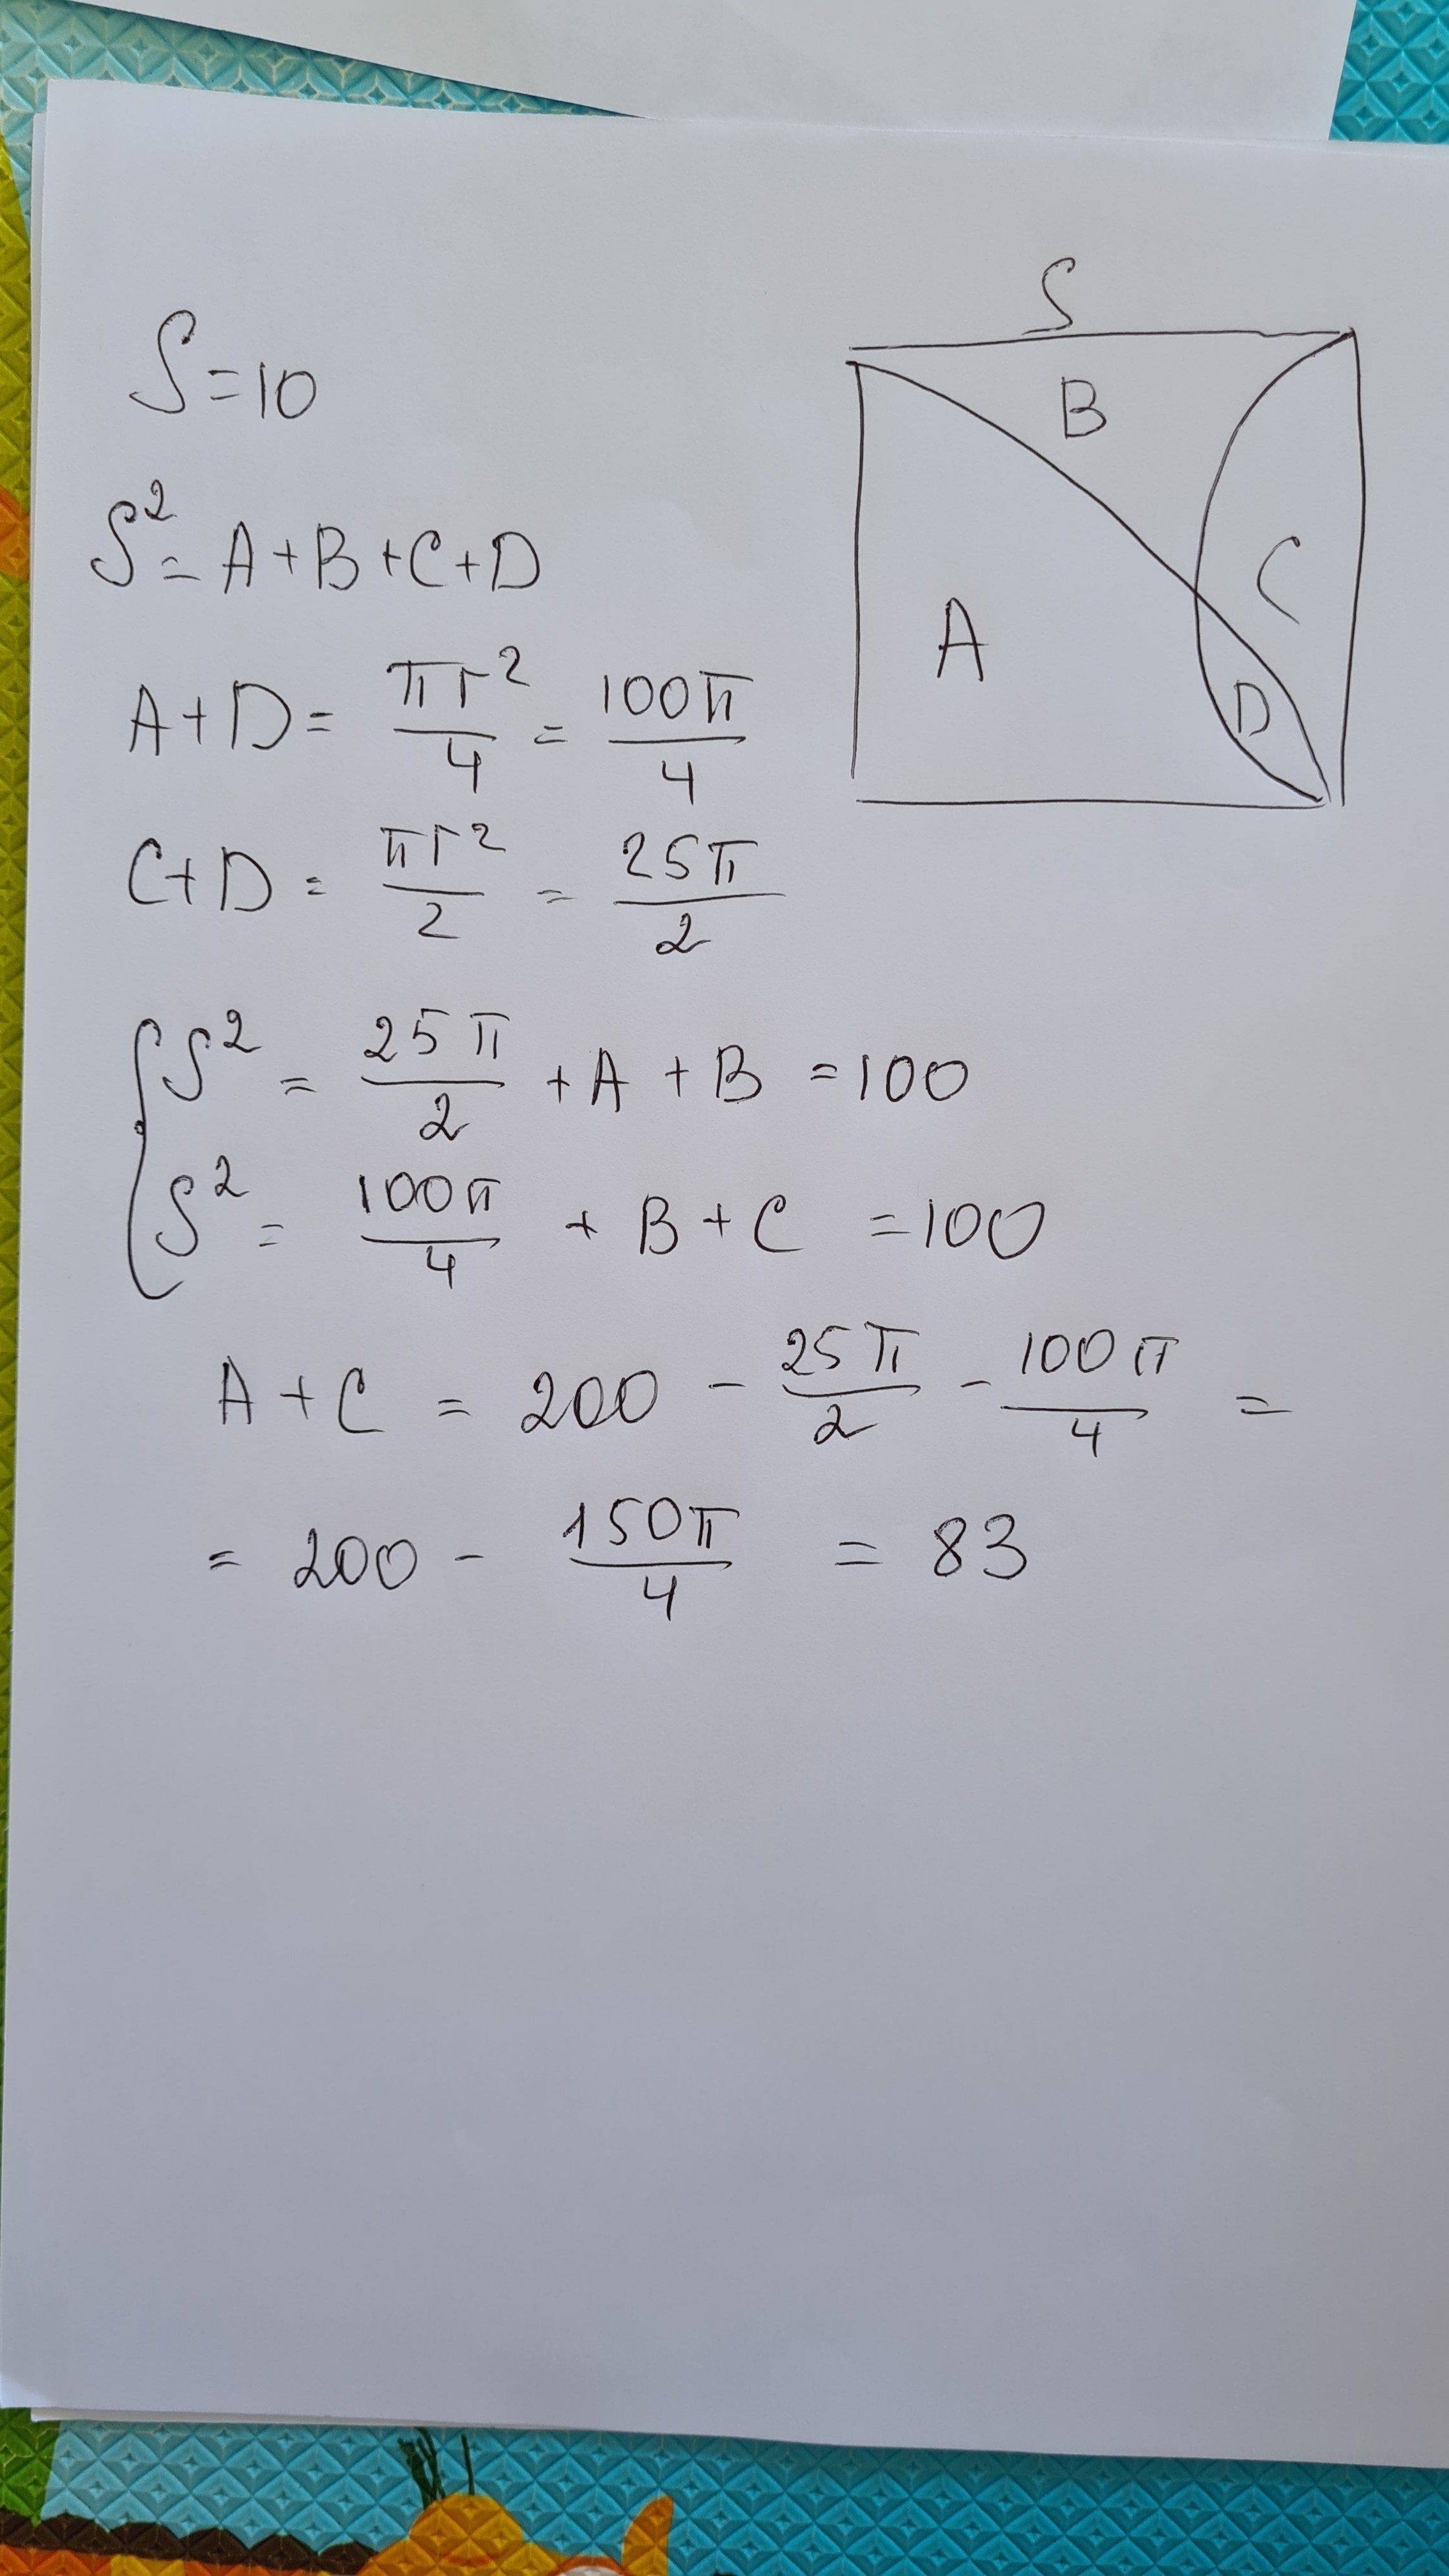 S
S=10
B
S² = A+B+C+D
C
A
A+D= πr²/4 = 100π/4
D
C+D = πr²/2 = 25π/2
{ S² = 25π/2 + A + B = 100
S² = 100π/4 + B + C = 100
A + C = 200 - 25π/2 - 100π/4 =
= 200 - 150π/4 = 83